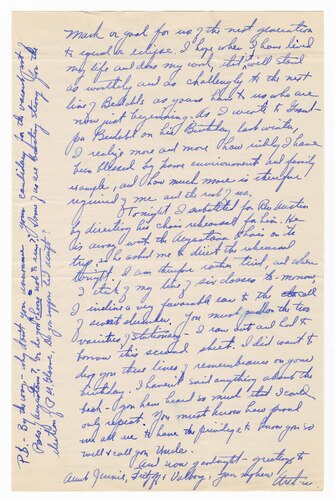 Mark or goal for us of the next generation
to equal or eclipse. I hope when I have lived
my life and done my work, that will stand
as worthily and as challengly to the next
line of as yours have to us who are
now just beginning. As I wrote to Grand-
pa on his Birthday last winter
I realize more and more how richly I have
been blessed by home environment and family
example, and how much more is therefore
required of me and the rest of us.
Tonight I substituted for
by directing his choir rehearsal for him. He
is away with the Augustana Choir on its
trip, so he asked me to direct the rehearsal
tonight. I am therefore rather tired, and when
I think of my line of six classes to-morrow,
I incline a very favorable ear to the call
of sweet slumber. You must pardon the two
varieties of stationary - I ran out and had to
borrow this second sheet. I did want to
drop you these lines of remembrance on your
birthday. I haven't said anything about the
book - you have heard so much that I could
only repeat. You must know how proud
we all are to have the privilege to know you so
well & call you Uncle.
And now goodnight - greetings to
Aunt Jennie, & . Your Nephew
P.S. - By the way - why don't you announce your candidacy for the vacant post
Pres. of Augustana? Or do you care not to run? Some of us are boosting strong for the
election of P. M. , do you support his